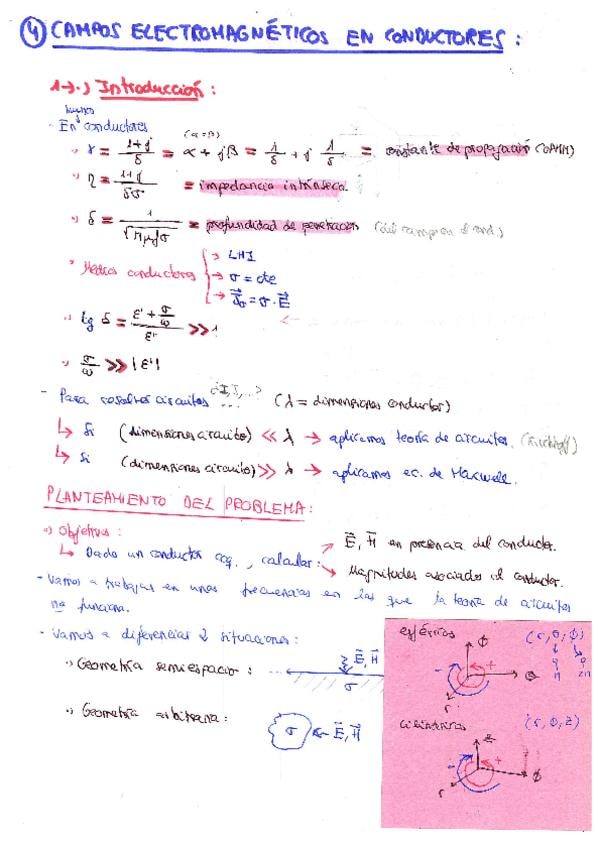 ④ CAMPOS ELECTROMAGNÉTICOS EN CONDUCTORES:
1→·) Introducción:
buenos
- En conductores
(α=β)
γ = 1+j/δ = α + jβ = 1/δ + j 1/δ = constante de propagación
η = 1+j/δσ = impedancia intrínseca.
δ = 1/√πμfσ = profundidad de penetración (del campo en el cond.)
Medios conductores
→ LHI
→ σ = cte
→ J⃗σ = σ·E⃗
tg δ = ε''+σ/ω / ε' >> 1
σ/ω >> |ε'|
- Para resolver circuitos ... (λ = dimensiones conductor)
↳ Si (dimensiones circuito) << λ → aplicamos teoría de circuitos. (Kirchhoff)
↳ Si (dimensiones circuito) >> λ → aplicamos ec. de Maxwell.
PLANTEAMIENTO DEL PROBLEMA:
Objetivos:
↳ Dado un conductor cq., calcular:
→ E⃗, H⃗ en presencia del conductor.
→ Magnitudes asociadas al conductor.
- Vamos a trabajar en unas frecuencias en las que la teoría de circuitos
no funciona.
- Vamos a diferenciar 2 situaciones:
Geometría semiespacio:
E⃗, H⃗
σ
Geometría arbitraria:
σ ← E⃗, H⃗
esféricas (r, θ, ϕ)
π 2π
ϕ
- +
θ
r
cilíndricas (r, ϕ, z)
z
- +
ϕ
r